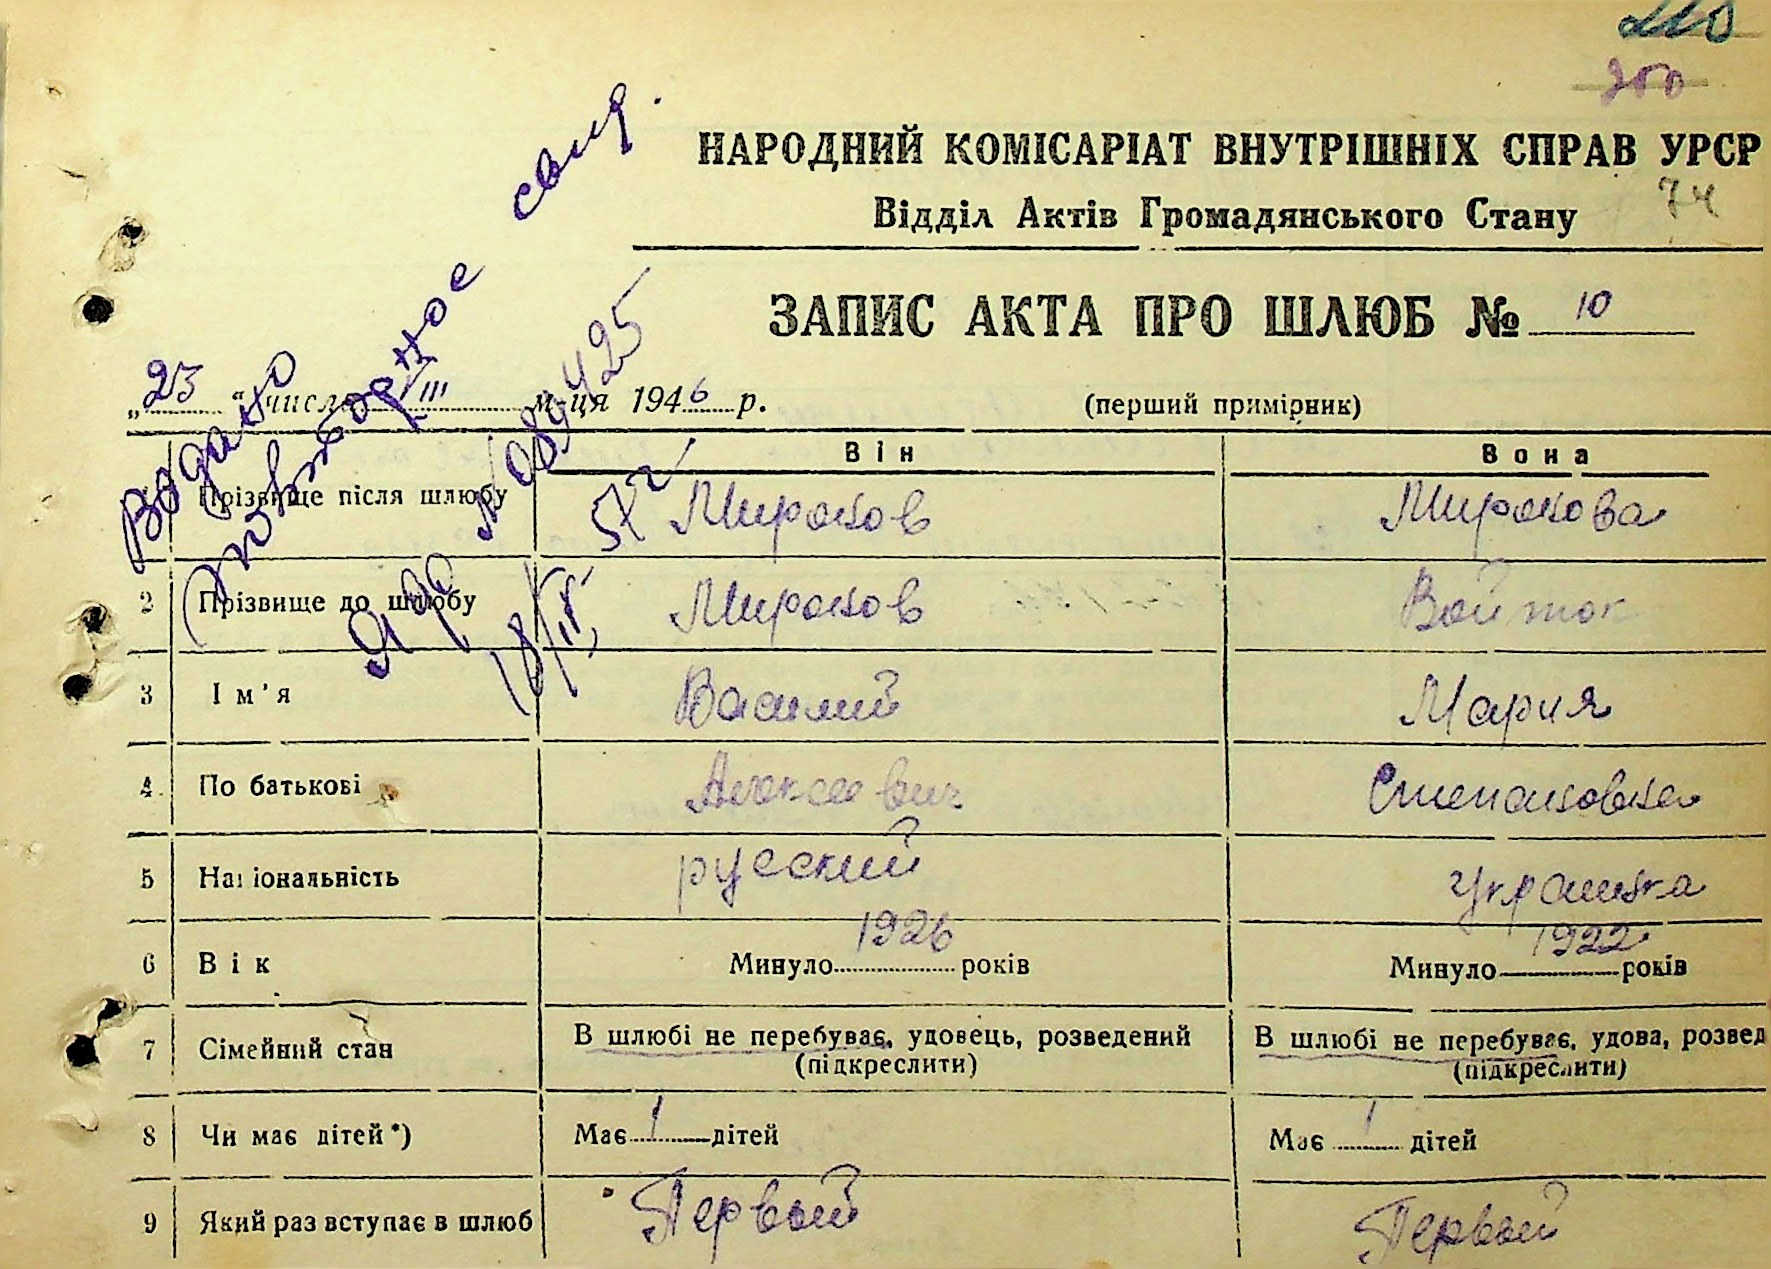 210
200
НАРОДНИЙ КОМІСАРІАТ ВНУТРІШНІХ СПРАВ УРСР
Відділ Актів Громадянського Стану
74
ЗАПИС АКТА ПРО ШЛЮБ № 10
„23“ числа III м-ця 1946 р. (перший примірник)
Він Вона
Прізвище після шлюбу Миронов Миронова
2 Прізвище до шлюбу Миронов Войток
3 Ім’я Василий Мария
4 По батькові Алексеевич Степановна
5 Національність русский украинка
6 Вік Минуло 1926 років Минуло 1922 років
7 Сімейний стан В шлюбі не перебуває, удовець, розведений В шлюбі не перебуває, удова, розвед
(підкреслити) (підкреслити)
8 Чи має дітей*) Має 1 дітей Має 1 дітей
9 Який раз вступає в шлюб Первый Первый
Выдано
повторное свид.
№ 089425